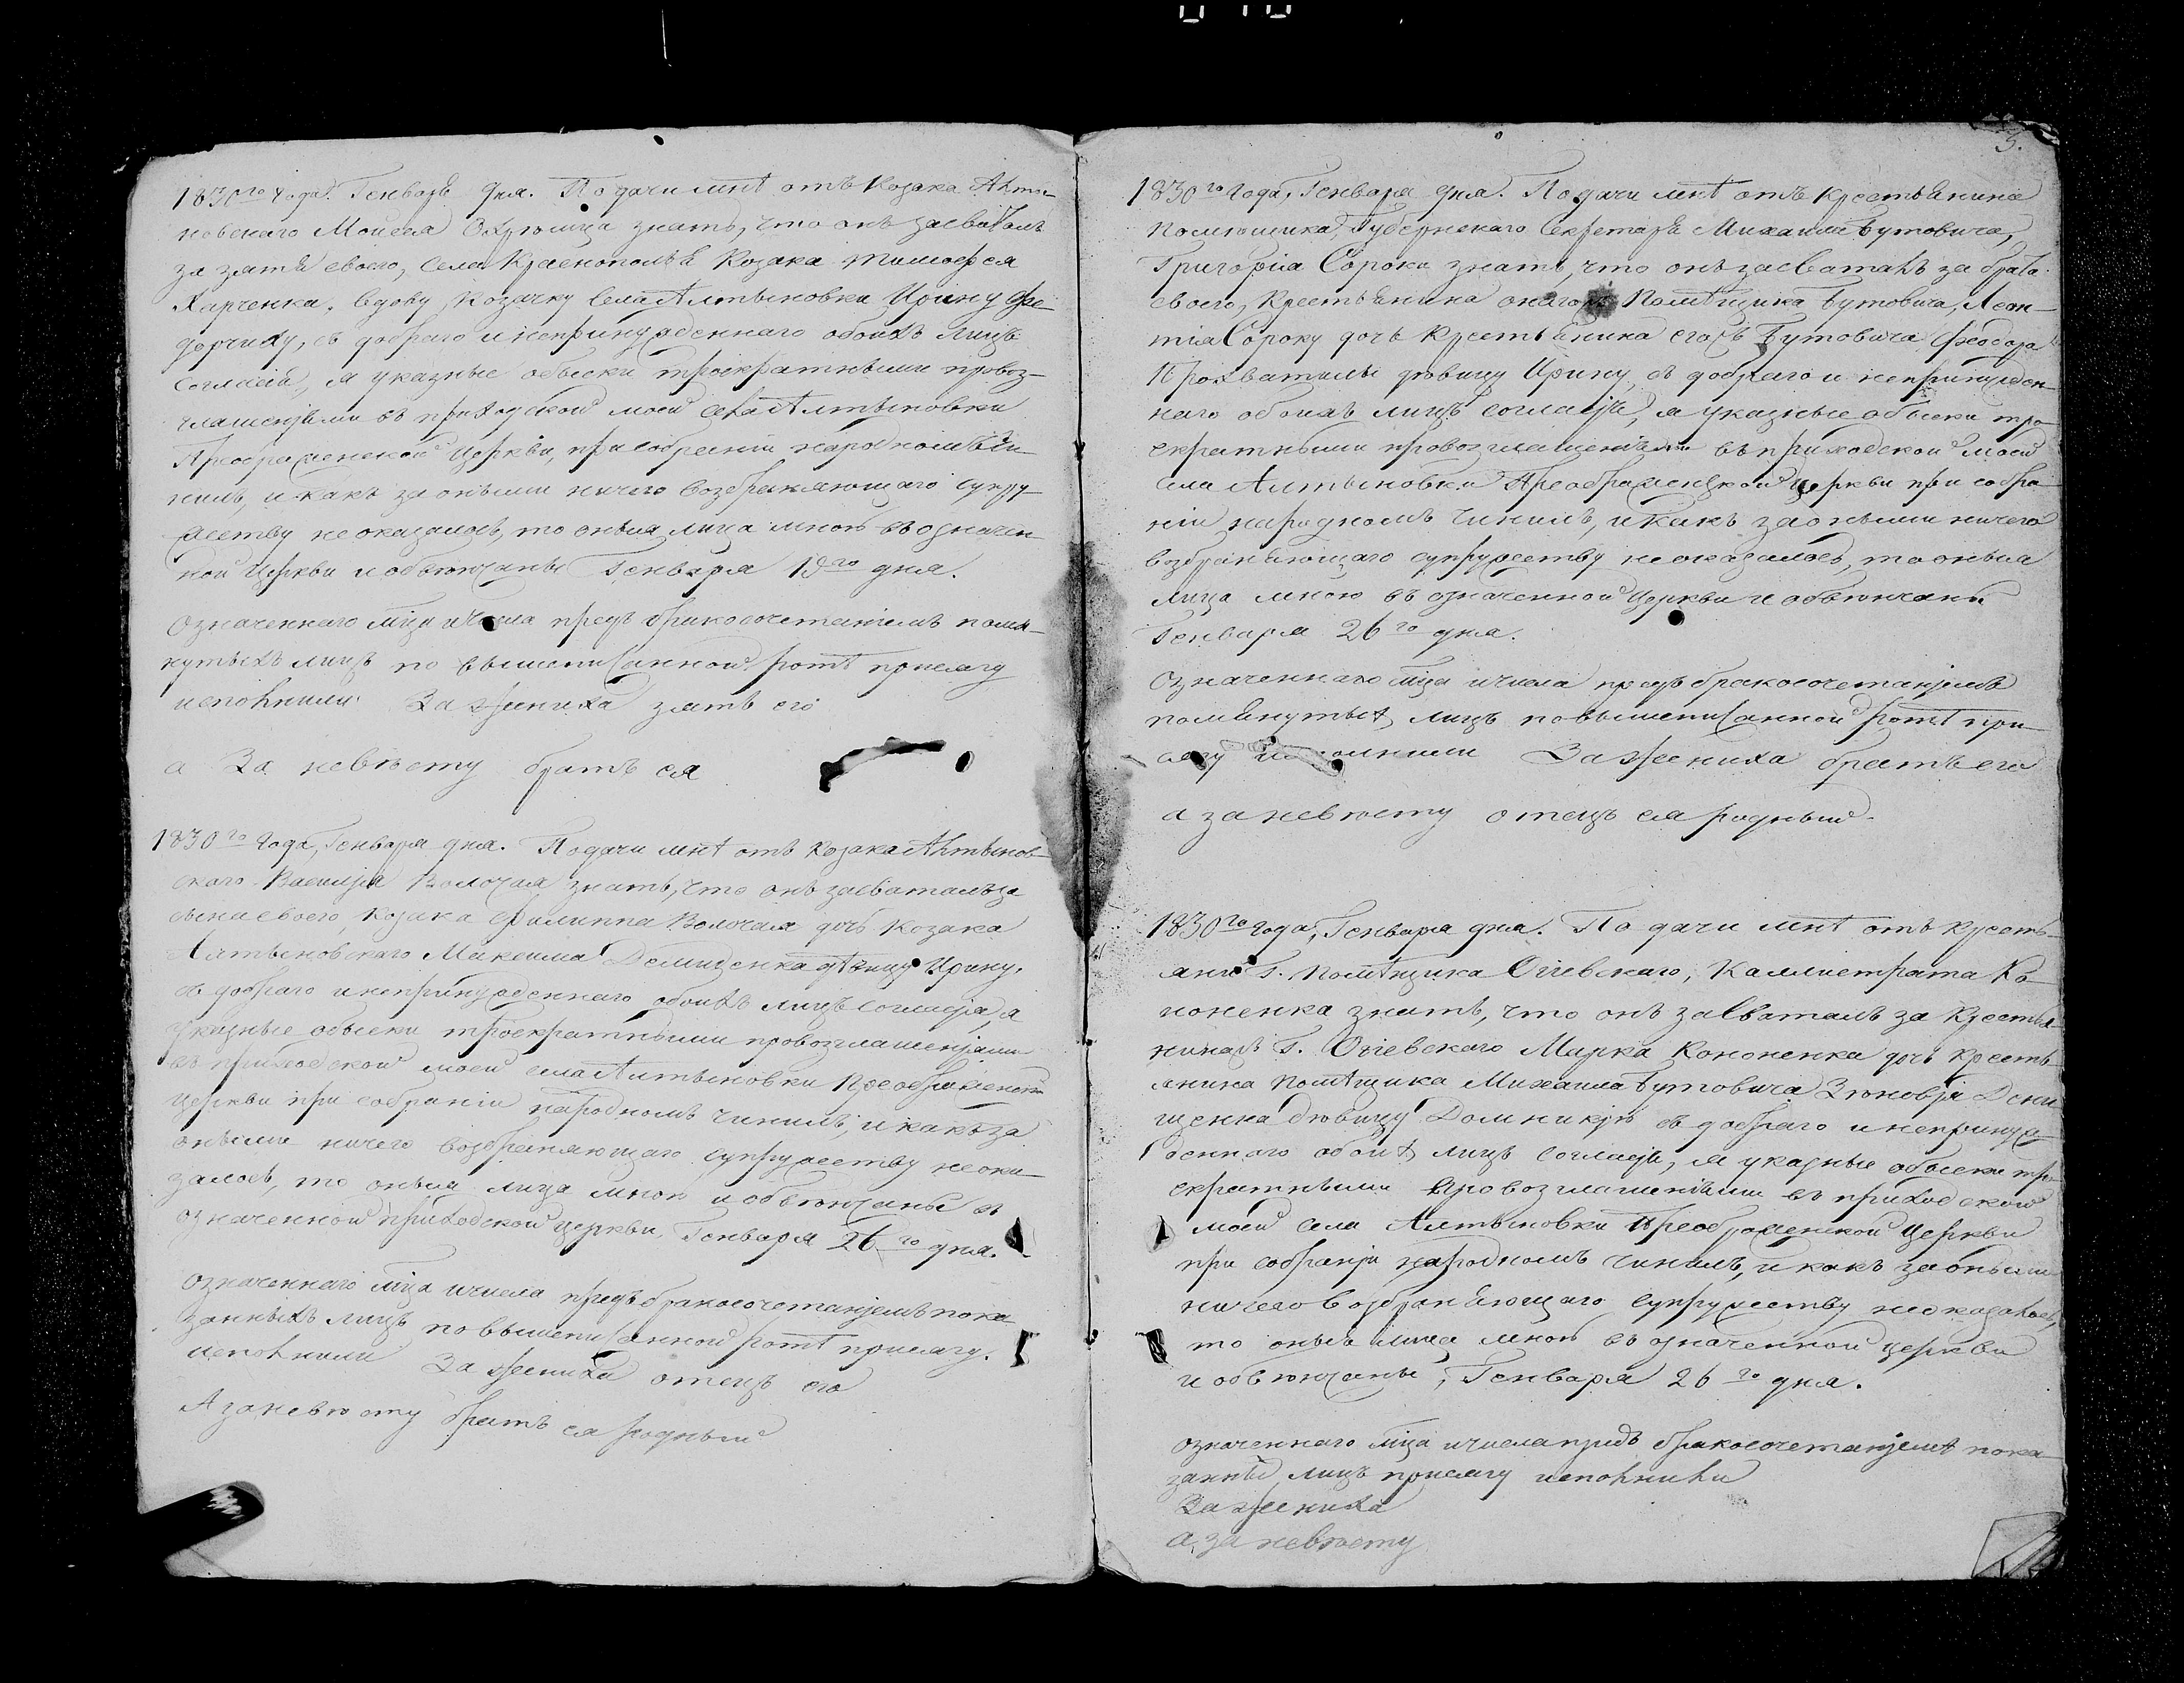 1830го Года. Генваря дня. По дачи мнѣ отъ Козака Алты-
новского Моисея знать, что онъ засваталъ
за зятя своего, села Краснополья Козака Тимофея
Харченка, вдову Козачку села Алтыновки Ирину Фе-
дорчиху, съ добраго и непринужденнаго обоихъ лицъ
согласія, я указные обыски троекратными провоз-
глашеніями въ приходской моей села Алтыновки
Преображенской Церкви, при собраніи народномъ чи-
нилъ, и какъ за оными ничего возбраняющаго супру-
жеству не оказалось, то оныя лица мною въ означен-
ной Церкви и обвѣнчаны Генваря 19го дня.
Означеннаго мца и числа предъ бракосочетаніемъ помя-
нутыхъ лицъ по вышеписанной ротѣ присягу
исполнили За жениха зять его
а За невѣсту братъ ея
1830го Года, Генваря дня. По дачи мнѣ отъ Козака Алтынов-
ского Василія Волочая знать, что онъ засваталъ за
сына своего, Козака Филиппа Волочая дочь Козака
Алтыновского Максима Демиденка дѣвицу Ирину,
съ добраго и непринужденнаго обоихъ лицъ согласія, я
указные обыски троекратными провозглашеніями
въ приходской моей села Алтыновки Преображенской
Церкви при собраніи народномъ чинилъ, и какъ за
оными ничего возбраняющаго супружеству не ока-
залось, то оныя лица мною и обвѣнчаны въ
означенной приходской церкви, Генваря 26го дня.
Означеннаго мца и числа предъ бракосочетаніемъ пока-
занныхъ лицъ по вышеписанной ротѣ присягу.
исполнили За жениха отецъ его
А за невѣсту братъ ея родный
3.
1830го Года, Генваря дня. По дачи мнѣ отъ Крестьянина
Помѣщика, Губернскаго Секретаря Михаила Бутовича,
Григорія Сороки знать, что онъ засваталъ за брата
своего, Крестьянина Помѣщика Бутовича, Леон-
тія Сороку дочь Крестьянина егожъ Бутовича Феодора
дѣвицу Ирину, съ добраго и непринужден-
наго обоихъ лицъ согласія, я указные обыски трое-
кратными провозглашеніями въ приходской моей
села Алтыновки Преображенской церкви при собра-
ніи народномъ чинилъ, и какъ за оными ничего
возбраняющаго супружеству не оказалось, то оныя
лица мною въ означенной Церкви и обвѣнчаны
Генваря 26го дня.
Означеннаго мца и числа предъ бракосочетаніемъ
помянутыхъ лицъ по вышеписанной ротѣ при-
сягу исполнили За жениха братъ его
а за невѣсту отецъ ея родный.
1830го Года, Генваря дня. По дачи мнѣ отъ Кресть-
янина Г. Помѣщика Огіевскаго, Каллистрата Ко-
ноненка знать, что онъ засваталъ за Крестья-
нинажъ Г. Огіевскаго Марка Кононенка дочь Кресть-
янина Помѣщика Михаила Бутовича Зѣновія
дѣвицу Домникію съ добраго и непринуж-
деннаго обоихъ лицъ согласія, я указные обыски трое-
кратными провозглашеніями въ приходской
моей села Алтыновки Преображенской Церкви
при собраніи народномъ чинилъ, и какъ за оными
ничего возбраняющаго супружеству не оказалось,
то оныя лица мною въ означенной церкви
и обвѣнчаны, Генваря 26го дня.
Означеннаго мца и числа предъ бракосочетаніемъ пока-
занныхъ лицъ присягу исполнили
За жениха
а за невѣсту